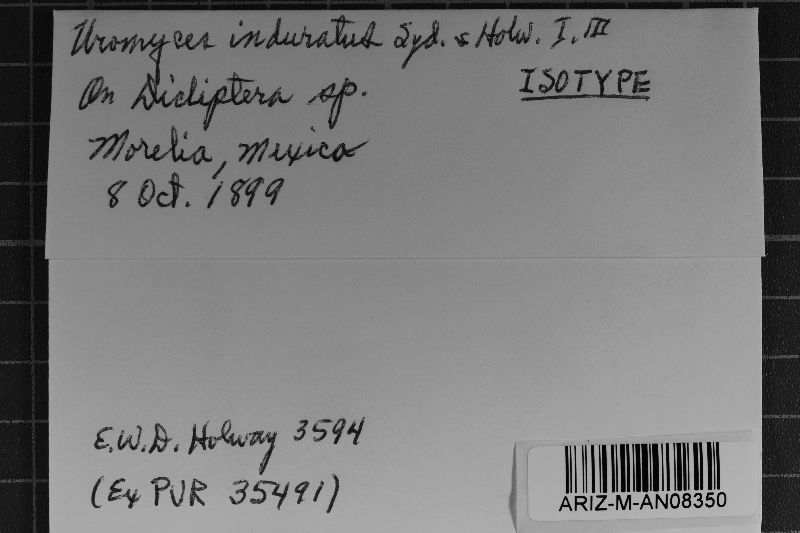 Uromyces induratus Syd. & Holw. I. III
On Dicliptera sp.
ISOTYPE
Morelia, Mexico
8 Oct. 1899
E.W.D. Holway 3594
(Ex PUR 35491)
ARIZ-M-AN08350